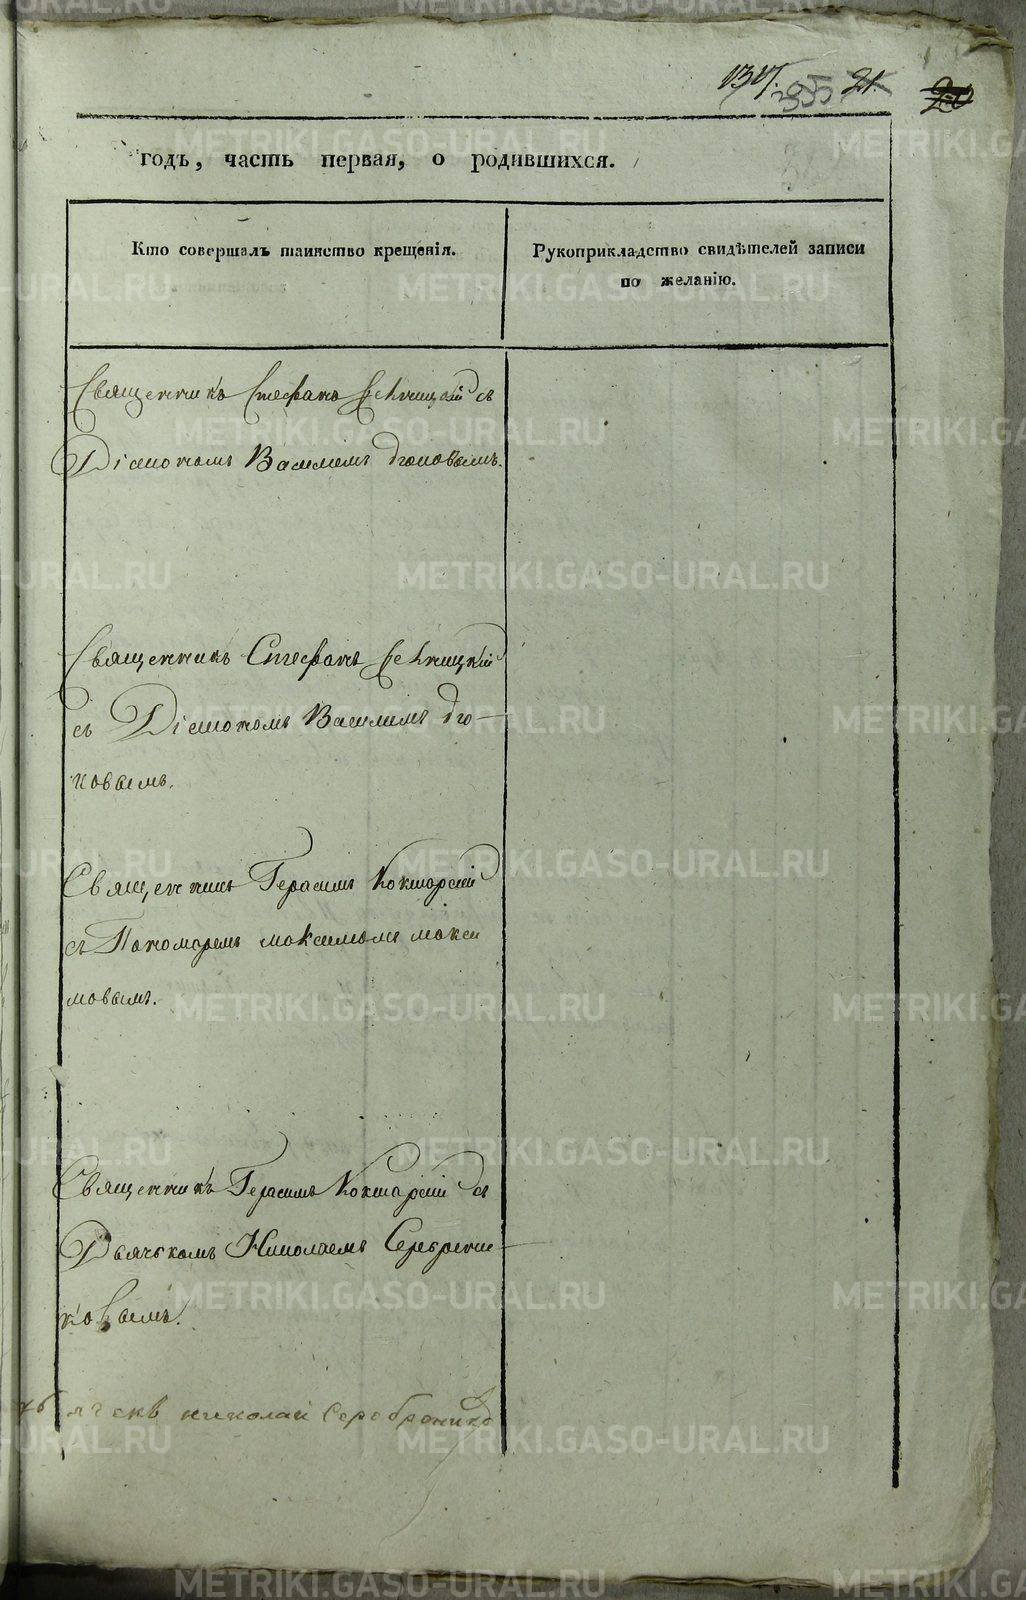 134. 335 21. 20
годъ, часть первая, о родившихся.
Кто совершалъ таинство крещенія.
Рукоприкладство свидѣтелей записи
по желанію.
Священникъ Стефанъ с
Діакономъ Василіемъ
Священникъ Стефанъ
съ Діакономъ Василимъ
ковымъ.
Священникъ Герасимъ Кокшарскій
съ Пономаремъ максимомъ макси
мовымъ.
Священникъ Герасимъ Кокшарскій съ
Дьячькомъ Николаемъ Серебрени-
ковымъ.
николай Серебраников
METRIKI.GASO-URAL.RU